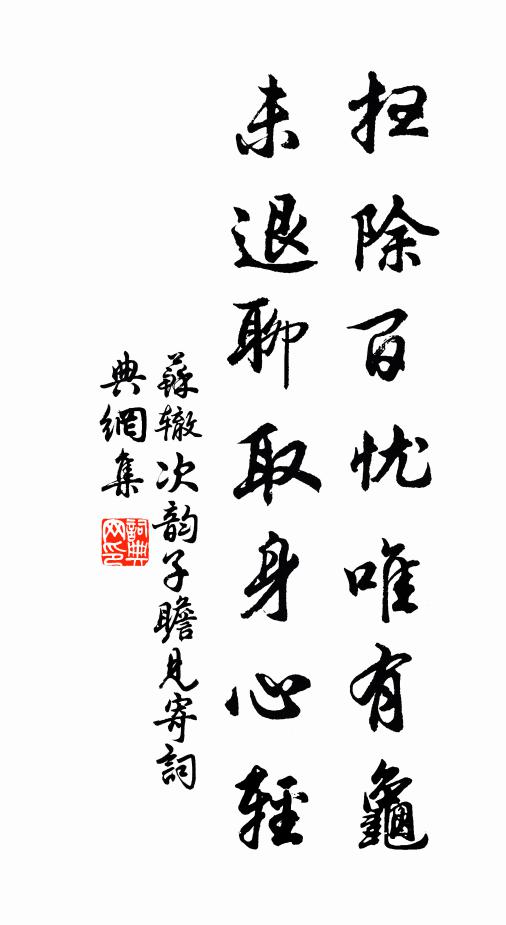 扫除百忧唯有龜
未退聊取身心輕
蘇辙次韵子瞻见寄詞
典網集
詞典网印